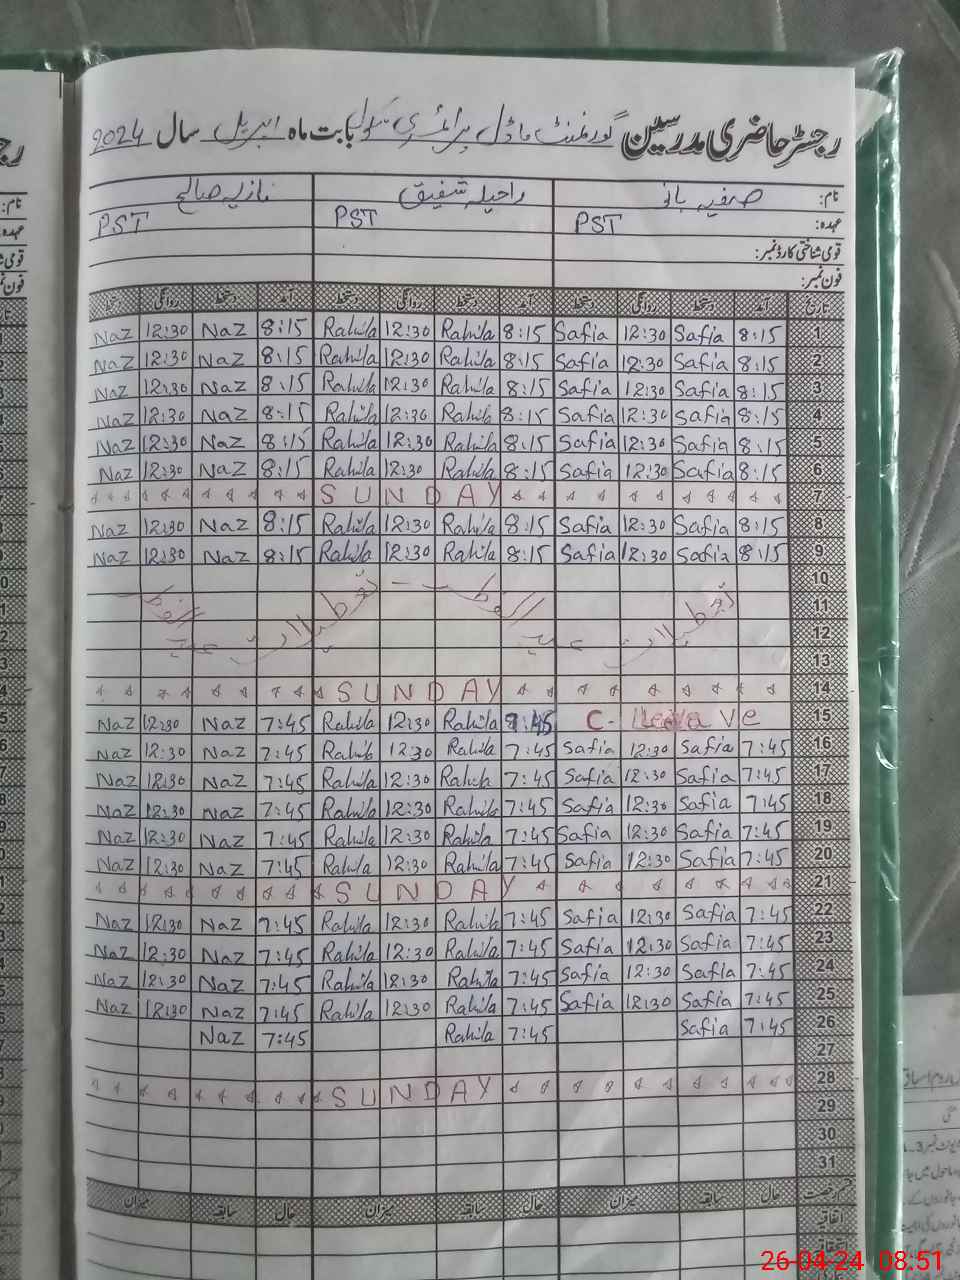 رجسٹر حاضری مدرسین گورنمنٹ ماڈل پرائمری سکول بابت ماہ اپریل سال 2024
نام: صفیہ بانو راحیلہ شفیق نازیہ صالح
عہدہ: PST PST PST
قومی شناختی کارڈ نمبر:
فون نمبر:
تاریخ آمد دستخط روانگی دستخط آمد دستخط روانگی دستخط آمد دستخط روانگی دستخط
1 8:15 Safia 12:30 Safia 8:15 Rahila 12:30 Rahila 8:15 Naz 12:30 Naz
2 8:15 Safia 12:30 Safia 8:15 Rahila 12:30 Rahila 8:15 Naz 12:30 Naz
3 8:15 Safia 12:30 Safia 8:15 Rahila 12:30 Rahila 8:15 Naz 12:30 Naz
4 8:15 Safia 12:30 Safia 8:15 Rahila 12:30 Rahila 8:15 Naz 12:30 Naz
5 8:15 Safia 12:30 Safia 8:15 Rahila 12:30 Rahila 8:15 Naz 12:30 Naz
6 8:15 Safia 12:30 Safia 8:15 Rahila 12:30 Rahila 8:15 Naz 12:30 Naz
7 SUNDAY
8 8:15 Safia 12:30 Safia 8:15 Rahila 12:30 Rahila 8:15 Naz 12:30 Naz
9 8:15 Safia 12:30 Safia 8:15 Rahila 12:30 Rahila 8:15 Naz 12:30 Naz
10
11 تعطیلات عید الفطر - تعطیلات عید الفطر
12
13
14 SUNDAY
15 C- Leave 7:45 Rahila 12:30 Rahila 7:45 Naz 12:30 Naz
16 7:45 Safia 12:30 Safia 7:45 Rahila 12:30 Rahila 7:45 Naz 12:30 Naz
17 7:45 Safia 12:30 Safia 7:45 Rahila 12:30 Rahila 7:45 Naz 12:30 Naz
18 7:45 Safia 12:30 Safia 7:45 Rahila 12:30 Rahila 7:45 Naz 12:30 Naz
19 7:45 Safia 12:30 Safia 7:45 Rahila 12:30 Rahila 7:45 Naz 12:30 Naz
20 7:45 Safia 12:30 Safia 7:45 Rahila 12:30 Rahila 7:45 Naz 12:30 Naz
21 SUNDAY
22 7:45 Safia 12:30 Safia 7:45 Rahila 12:30 Rahila 7:45 Naz 12:30 Naz
23 7:45 Safia 12:30 Safia 7:45 Rahila 12:30 Rahila 7:45 Naz 12:30 Naz
24 7:45 Safia 12:30 Safia 7:45 Rahila 12:30 Rahila 7:45 Naz 12:30 Naz
25 7:45 Safia 12:30 Safia 7:45 Rahila 12:30 Rahila 7:45 Naz 12:30 Naz
26 7:45 Safia 7:45 Rahila 7:45 Naz
27
28 SUNDAY
29
30
31
قسم رخصت حال سابقہ میزان حال سابقہ میزان حال سابقہ میزان
اتفاقیہ
26-04-24 08.51